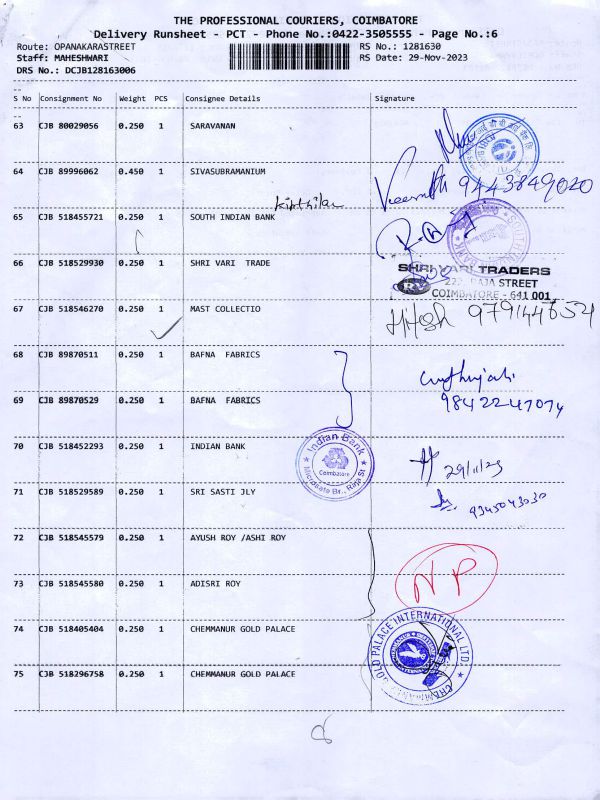 THE PROFESSIONAL COURIERS, COIMBATORE
Delivery Runsheet - PCT - Phone No.:0422-3505555 - Page No.:6
Route: OPANAKARASTREET RS No.: 1281630
Staff: MAHESHWARI RS Date: 29-Nov-2023
DRS No.: DCJB128163006
S No Consignment No Weight PCS Consignee Details Signature
63 CJB 80029056 0.250 1 SARAVANAN
64 CJB 89996062 0.450 1 SIVASUBRAMANIUM
9443849020
65 CJB 518455721 0.250 1 SOUTH INDIAN BANK
66 CJB 518529930 0.250 1 SHRI VARI TRADE
SHRI VARI TRADERS
RAJA STREET
COIMBATORE - 641 001
67 CJB 518546270 0.250 1 MAST COLLECTIO
Hitesh
68 CJB 89870511 0.250 1 BAFNA FABRICS
69 CJB 89870529 0.250 1 BAFNA FABRICS
9842247074
70 CJB 518452293 0.250 1 INDIAN BANK
Indian Bank
Coimbatore
29/11/23
71 CJB 518529589 0.250 1 SRI SASTI JLY
9345043030
72 CJB 518545579 0.250 1 AYUSH ROY /ASHI ROY
73 CJB 518545580 0.250 1 ADISRI ROY
NP
74 CJB 518405404 0.250 1 CHEMMANUR GOLD PALACE
GOLD PALACE INTERNATIONAL LTD.
75 CJB 518296758 0.250 1 CHEMMANUR GOLD PALACE